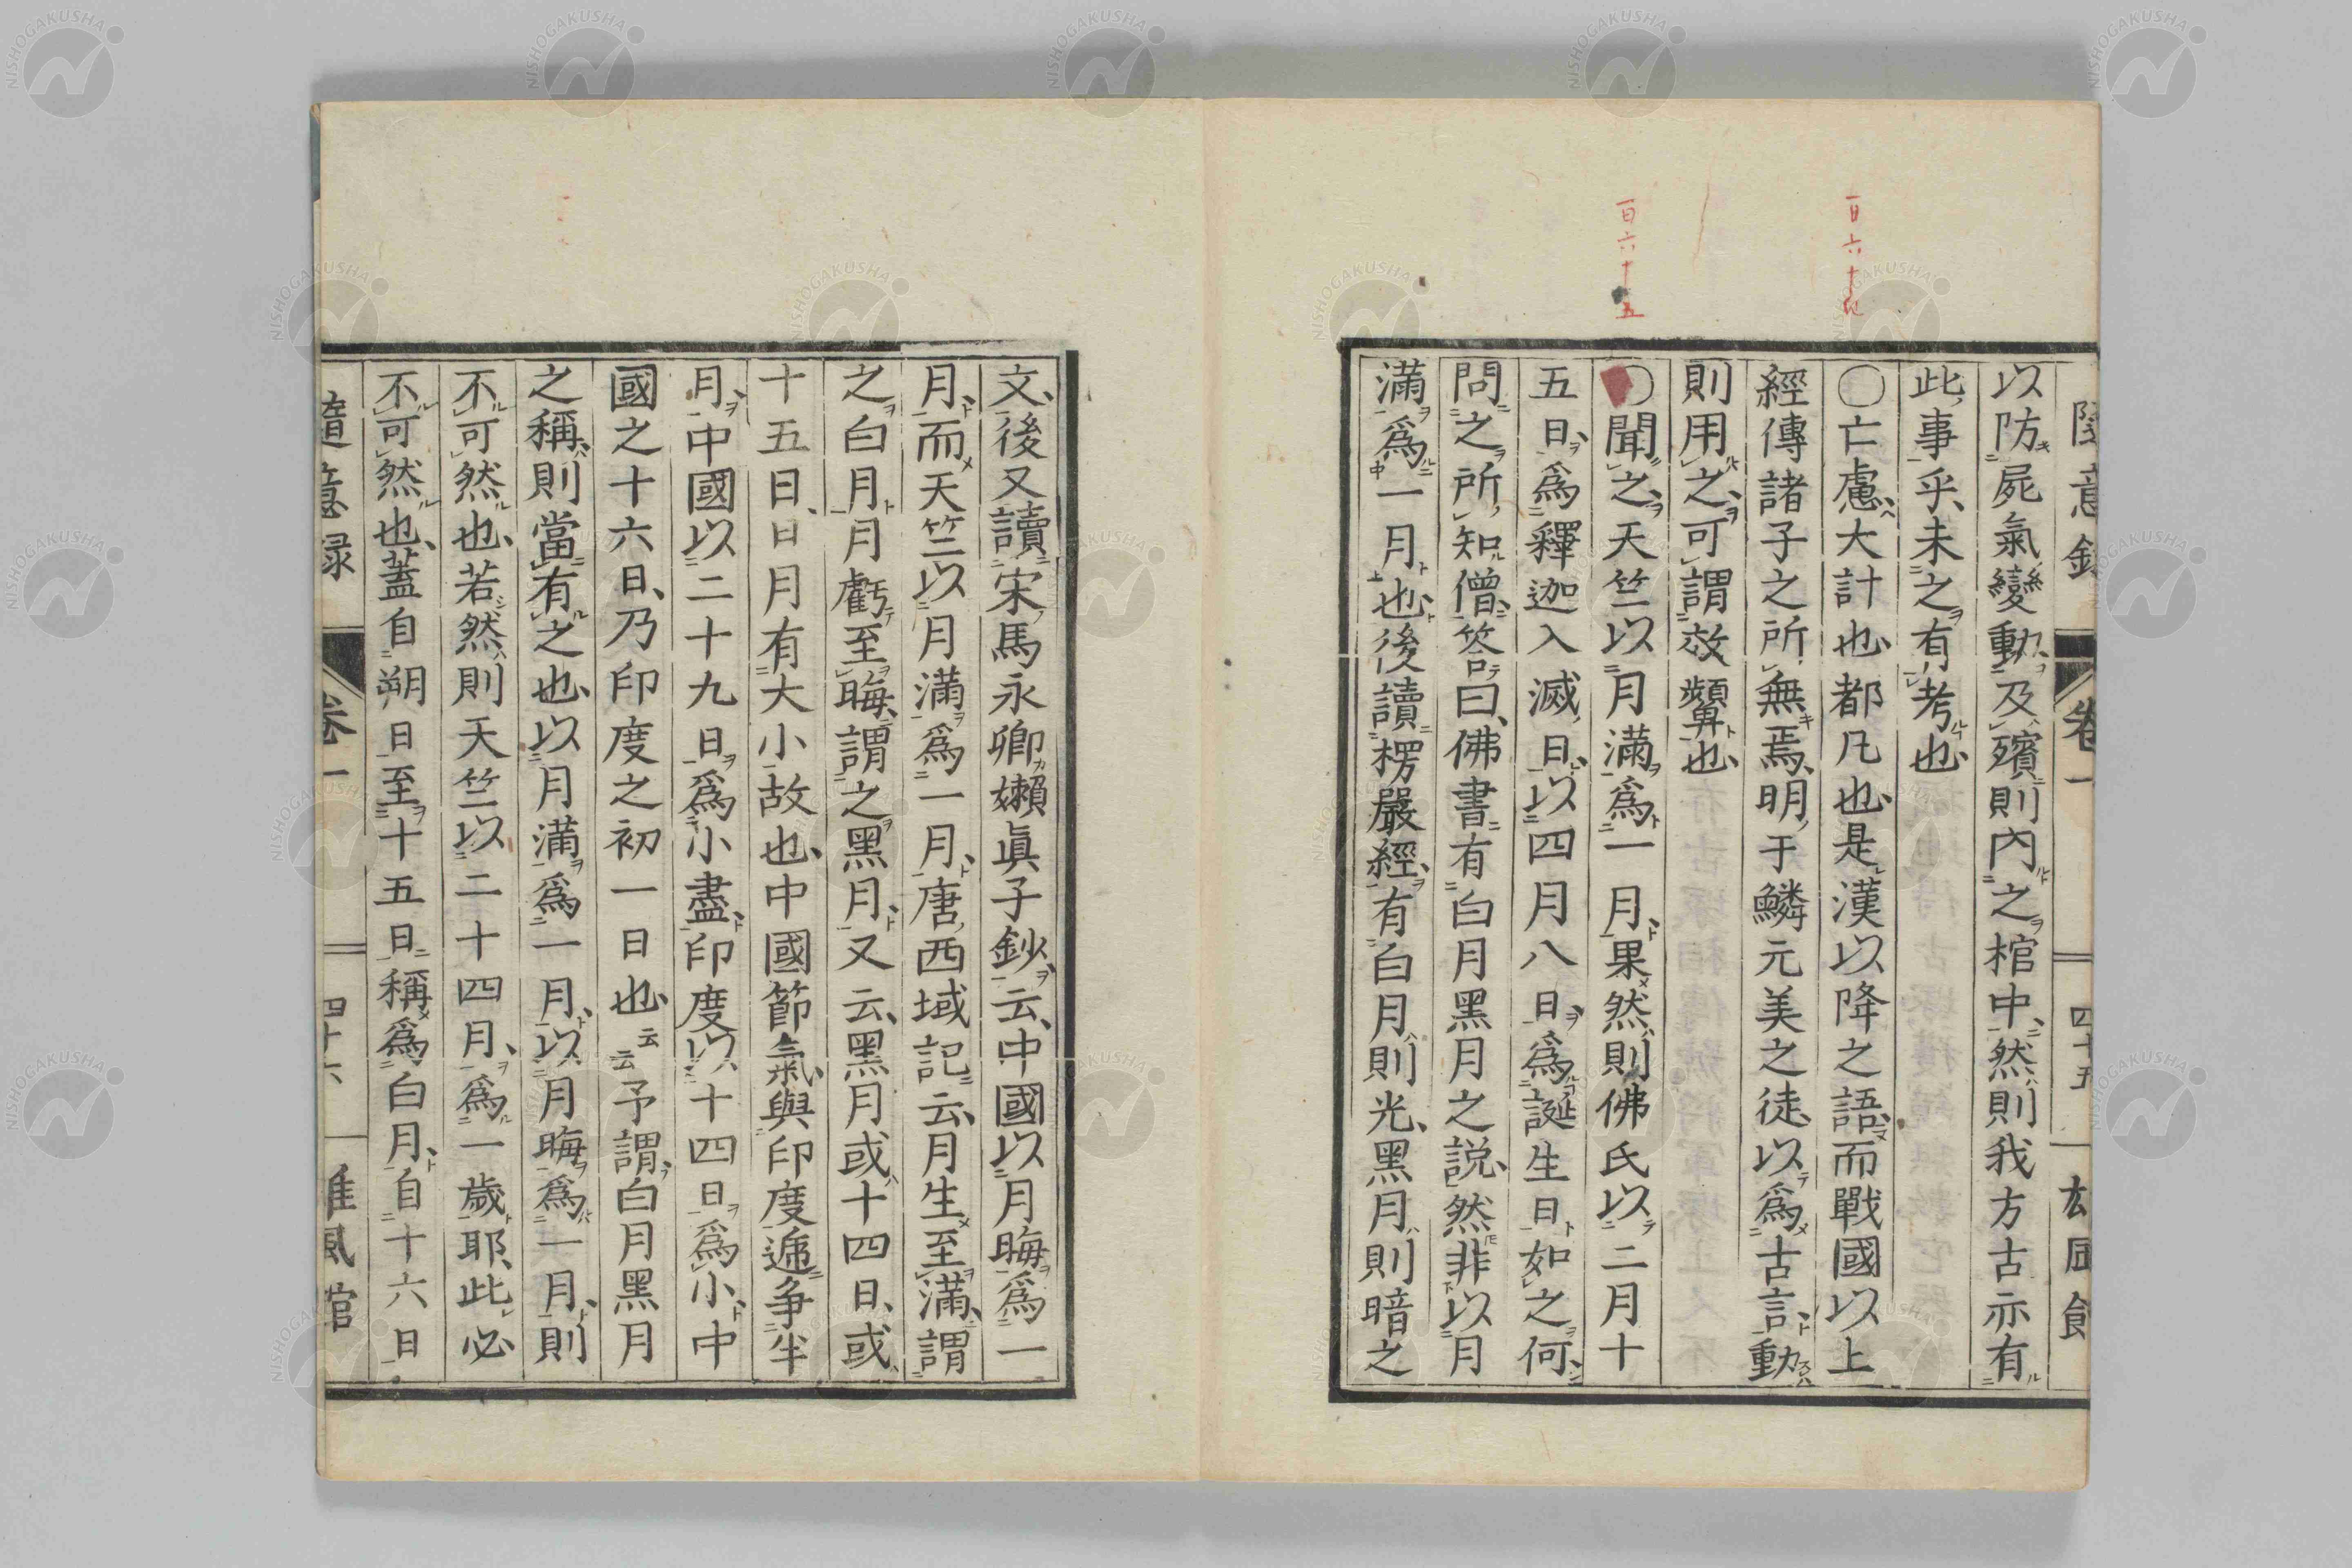 隨意錄 卷一 四十五
以防屍氣變動及殯則內之棺中然則我方古亦有
此事乎未之有考也
〇亡慮大計也都凡也是漢以降之語而戰國以上
經傳諸子之所無焉明于鱗元美之徒以爲古言動
則用之可謂效顰也
〇聞之天竺以月滿爲一月果然則佛氏以二月十
五日爲釋迦入滅日以四月八日爲誕生日如之何
問之所知僧答曰佛書有白月黑月之說然非以月
滿爲一月也後讀楞嚴經有白月則光黑月則暗之
文後又讀宋馬永卿嬾眞子鈔云中國以月晦爲一
月而天竺以月滿爲一月唐西域記云月生至滿謂
之白月月虧至晦謂之黑月又云黑月或十四日或
十五日日月有大小故也中國節氣與印度遞爭半
月中國以二十九日爲小盡印度以十四日爲小中
國之十六日乃印度之初一日也云云予謂白月黑月
之稱則當有之也以月滿爲一月以月晦爲一月則
不可然也若然則天竺以二十四月爲一歲耶此必
不可然也蓋自朔日至十五日稱爲白月自十六日
隨意錄 卷一 四十六 雄風館
百六十五
NISHOGAKUSHA